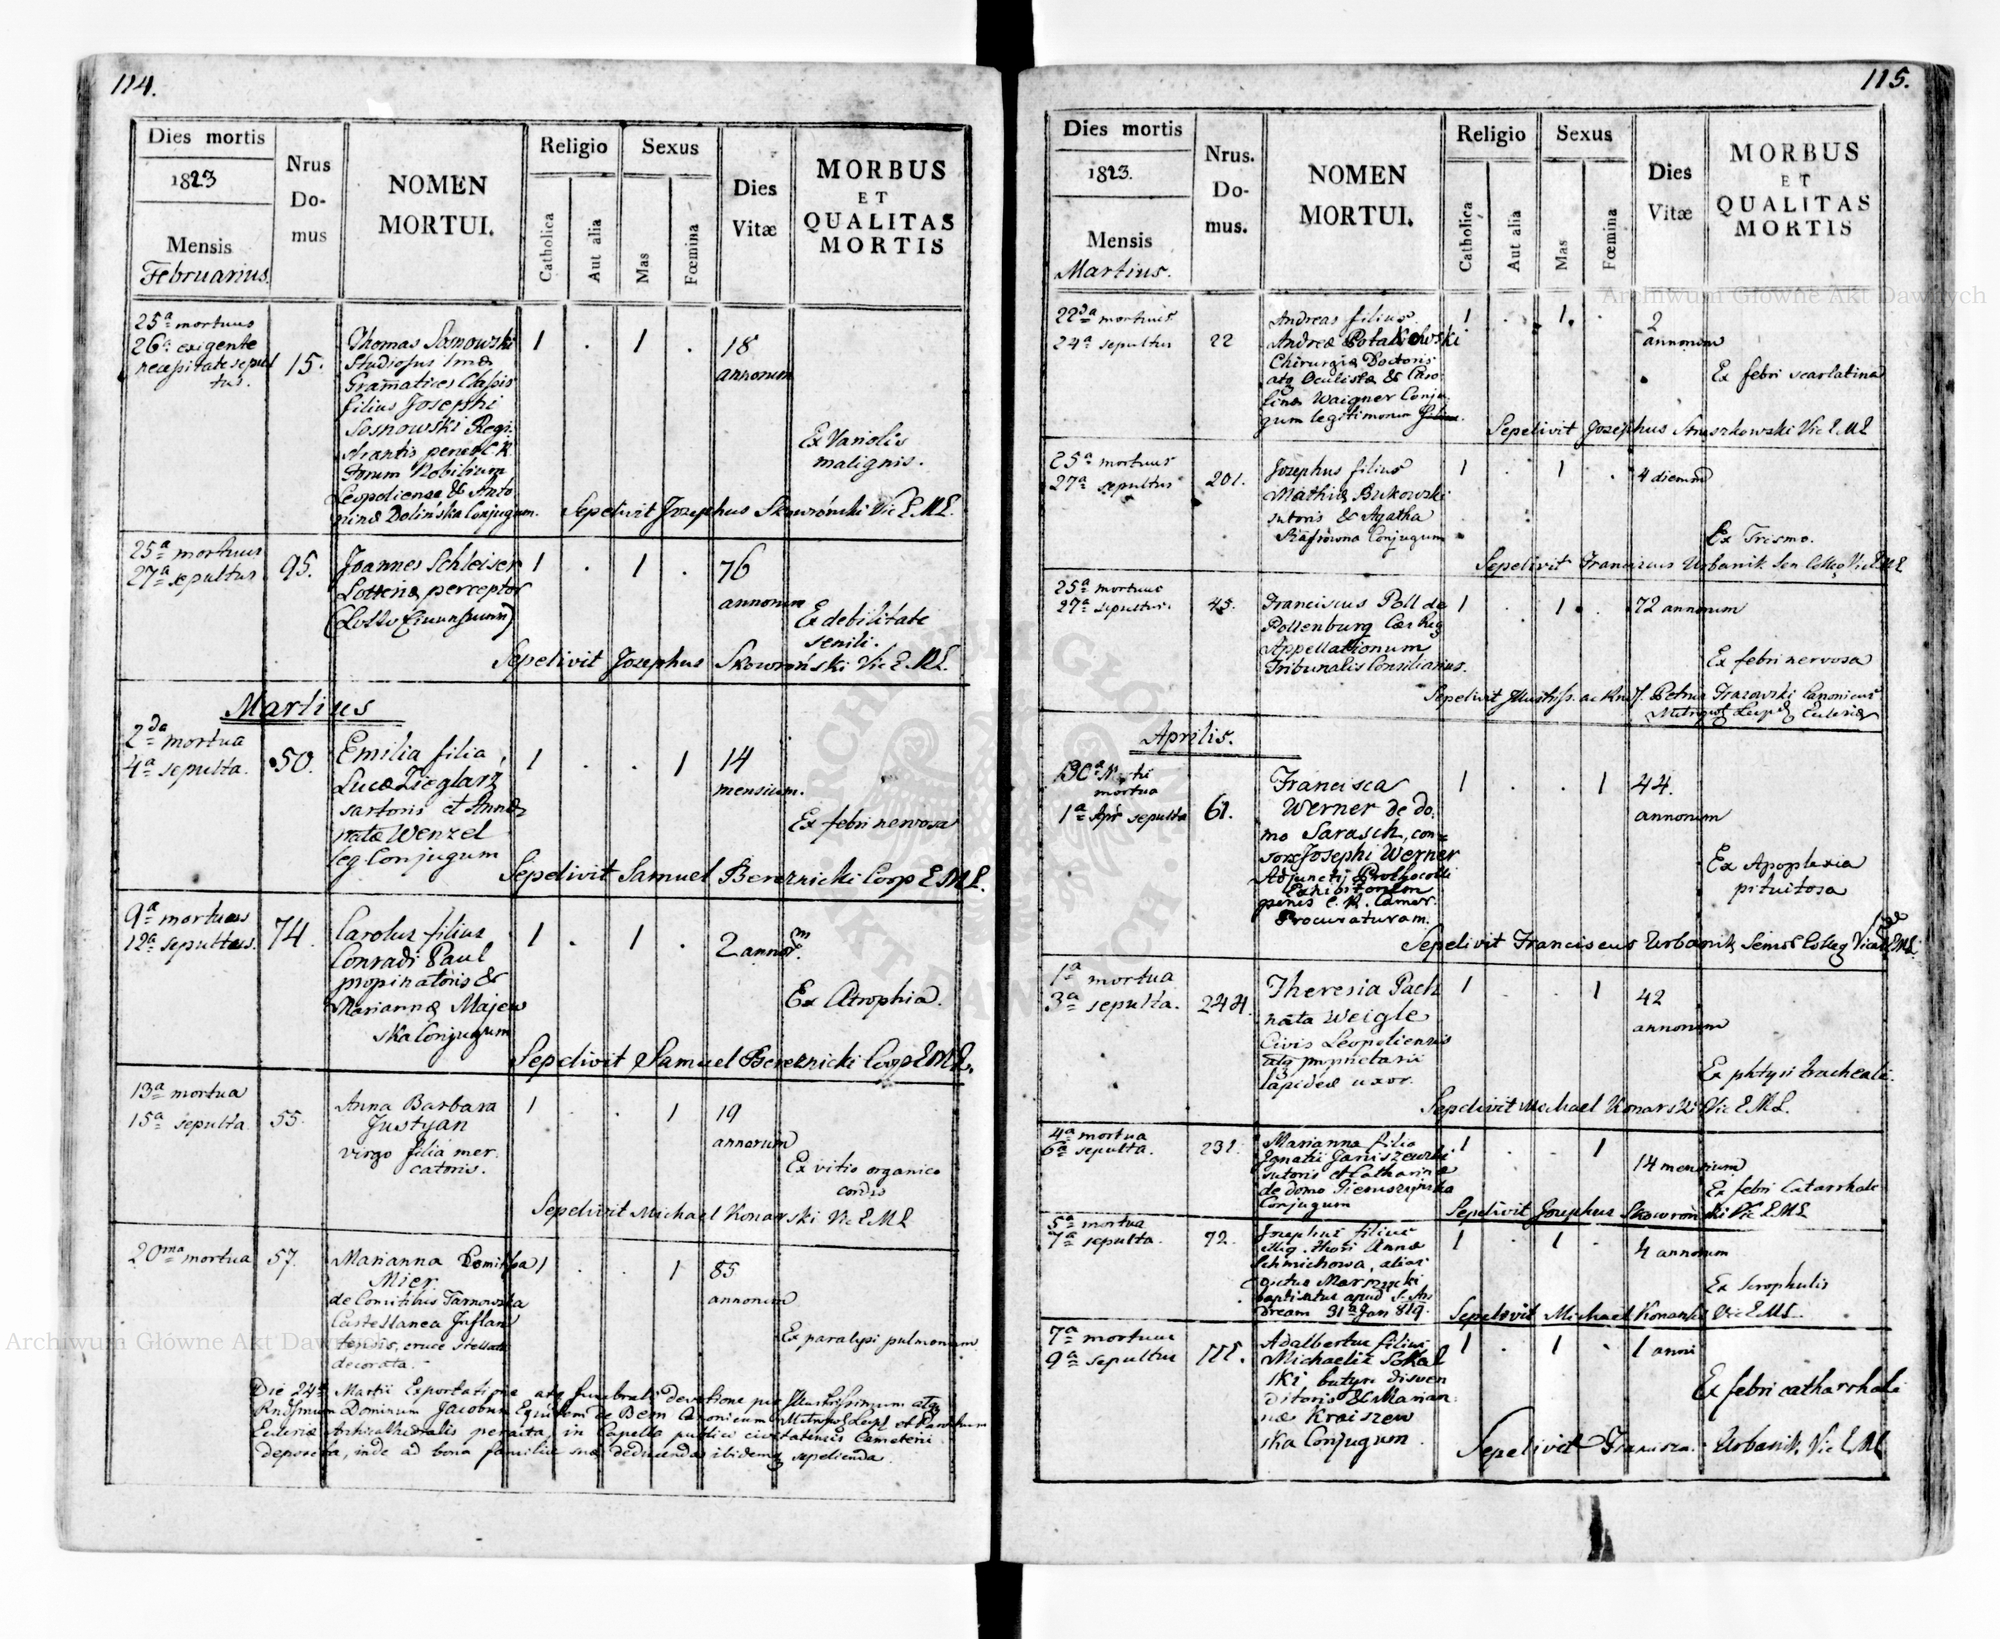 114.
Dies mortis
1823
Mensis
Februarius.
Nrus
Do-
mus
NOMEN
MORTUI.
Religio
Catholica
Aut alia
Sexus
Mas
Fœmina
Dies
Vitæ
MORBUS
ET
QUALITAS
MORTIS
25ª mortuus
26ª exigente
necessitate sepul
tus.
15.
Thomas Sosnowski
Studiosus
Gramatices Classis
filius Josephi
Sosnowski Regi-
strantis penes C. R.
Forum Nobilium
Leopoliense & Anto
ninæ Dolińska Conjugum.
1 . 1 .
18
annorum
Ex Variolis
malignis.
Sepelivit Josephus Skowroński Vic E. M. L.
25ª mortuus
27ª sepultus
95.
Joannes Schleiser
Lotteriæ perceptor
1 . 1 .
76
annorum
Ex debilitate
senili.
Sepelivit Josephus Skowroński Vic E. M. L.
Martius
2da mortua
4ª sepulta.
50.
Emilia filia
Lucæ Zieglarz
sartoris et Annæ
natæ Wenzel
leg. Conjugum
1 . . 1
14
mensium.
Ex febri nervosa
Sepelivit Samuel Bereznicki Coop E. M. L.
9ª mortuus
12ª sepultus.
74.
Carolus filius
Conradi Paul
propinatoris &
Mariannæ Majew
ska Conjugum
1 . 1 .
2 annor.
Ex Atrophia.
Sepelivit Samuel Bereznicki Coop E M L.
13ª mortua
15ª sepulta
55.
Anna Barbara
Justyan
virgo filia mer-
catoris.
1 . . 1
19
annorum
Ex vitio organico
cordis
Sepelivit Michael Konarski Vic E M L
20ma mortua
57.
Marianna Comitissa
Mier
de Comitibus Tarnowska
Castellanea Inflan
tensis, cruce stellata
decorata.
1 . . 1
85
annorum
Ex paralysi pulmonum
Die 24ª Martii Exportatione atq funebrali devotione per Illustrissimum atq
Rndssimum Dominum Jacobum Equitem de Bem Canonicum Metropol Leopl et Parochum
Ecclesiæ Archicathedralis peracta, in Capella publici civitatensis Cemeterii
deposita, inde ad bona familiæ suæ deducenda ibidemq sepelienda.
115.
Dies mortis
1823.
Mensis
Martius.
Nrus.
Do-
mus.
NOMEN
MORTUI.
Religio
Catholica
Aut alia
Sexus
Mas
Fœmina
Dies
Vitæ
MORBUS
ET
QUALITAS
MORTIS
22da mortuus
24ª sepultus
22
Andreas filius
Andreæ
Chirurgiæ Doctoris
atq Oculistæ & Caro
linæ Waigner Conju-
gum legitimorum
1 . 1 .
2
annorum
Ex febri scarlatina
Sepelivit Josephus Vic E M L
25ª mortuus
27ª sepultus
201.
Josephus filius
Mathiæ Bukowski
sutoris & Agatha
Conjugum
1 . 1 .
4 dierum
Ex Trismo.
Sepelivit Franciscus Urbanik Sen Colleg Vic E M L
25ª mortuus
27ª sepultus.
45.
Franciscus Poll de
Pollenburg Cæs Reg
Appellationum
Tribunalis Consiliarius.
1 . 1 .
72 annorum
Ex febri nervosa
Sepelivit Illustriss. ac Petrus Canonicus
Aprilis.
30ª Marti
mortua
1ª Apr sepulta
61.
Francisca
Werner de do-
mo Sarasch, con=
sors Josephi Werner
Adjuncti Prothocolli
Exhibitorum
penes C. R. Camer.
Procuraturam.
1 . . 1
44.
annorum
Ex Apoplexia
pituitosa
Sepelivit Franciscus Urbanik Senior Colleg Vic E M L.
1ª mortua
3ª sepulta.
244.
Theresia Pach
nata Weigle
Civis Leopoliensis
atq proprietarii
lapideæ uxor.
1 . . 1
42
annorum
Ex phtysi tracheali.
Sepelivit Michael Konarski Vic E M L.
4ª mortua
6ª sepulta.
231.
Marianna filia
Ignatii Janiszewski
sutoris et Catharinæ
de domo
Conjugum
1 . . 1
14 mensium
Ex febri Catarrhale
Sepelivit Josephus Skowroński Vic E M L
5ª mortua
7ª sepulta.
72.
Josephus filius
illeg. thori Annæ
Schmichowa, alias
baptisatus apud S. An
dream 31ª Jan 819.
1 . 1 .
4 annorum
Ex scrophulis
Sepelivit Michael Konarski Vic E M L
7ª mortuus
9ª sepultus
115.
Adalbertus filius
Michaelis Sokal
ski butyri disven
ditoris & Marian
næ Kraiszew
ska Conjugum
1 . 1 .
1 anni
Ex febri catharrhali
Sepelivit Francisc. Urbanik Vic E M L
Archiwum Główne Akt Dawnych
Archiwum Główne Akt Dawnych
ARCHIWUM GŁÓWNE AKT DAWNYCH